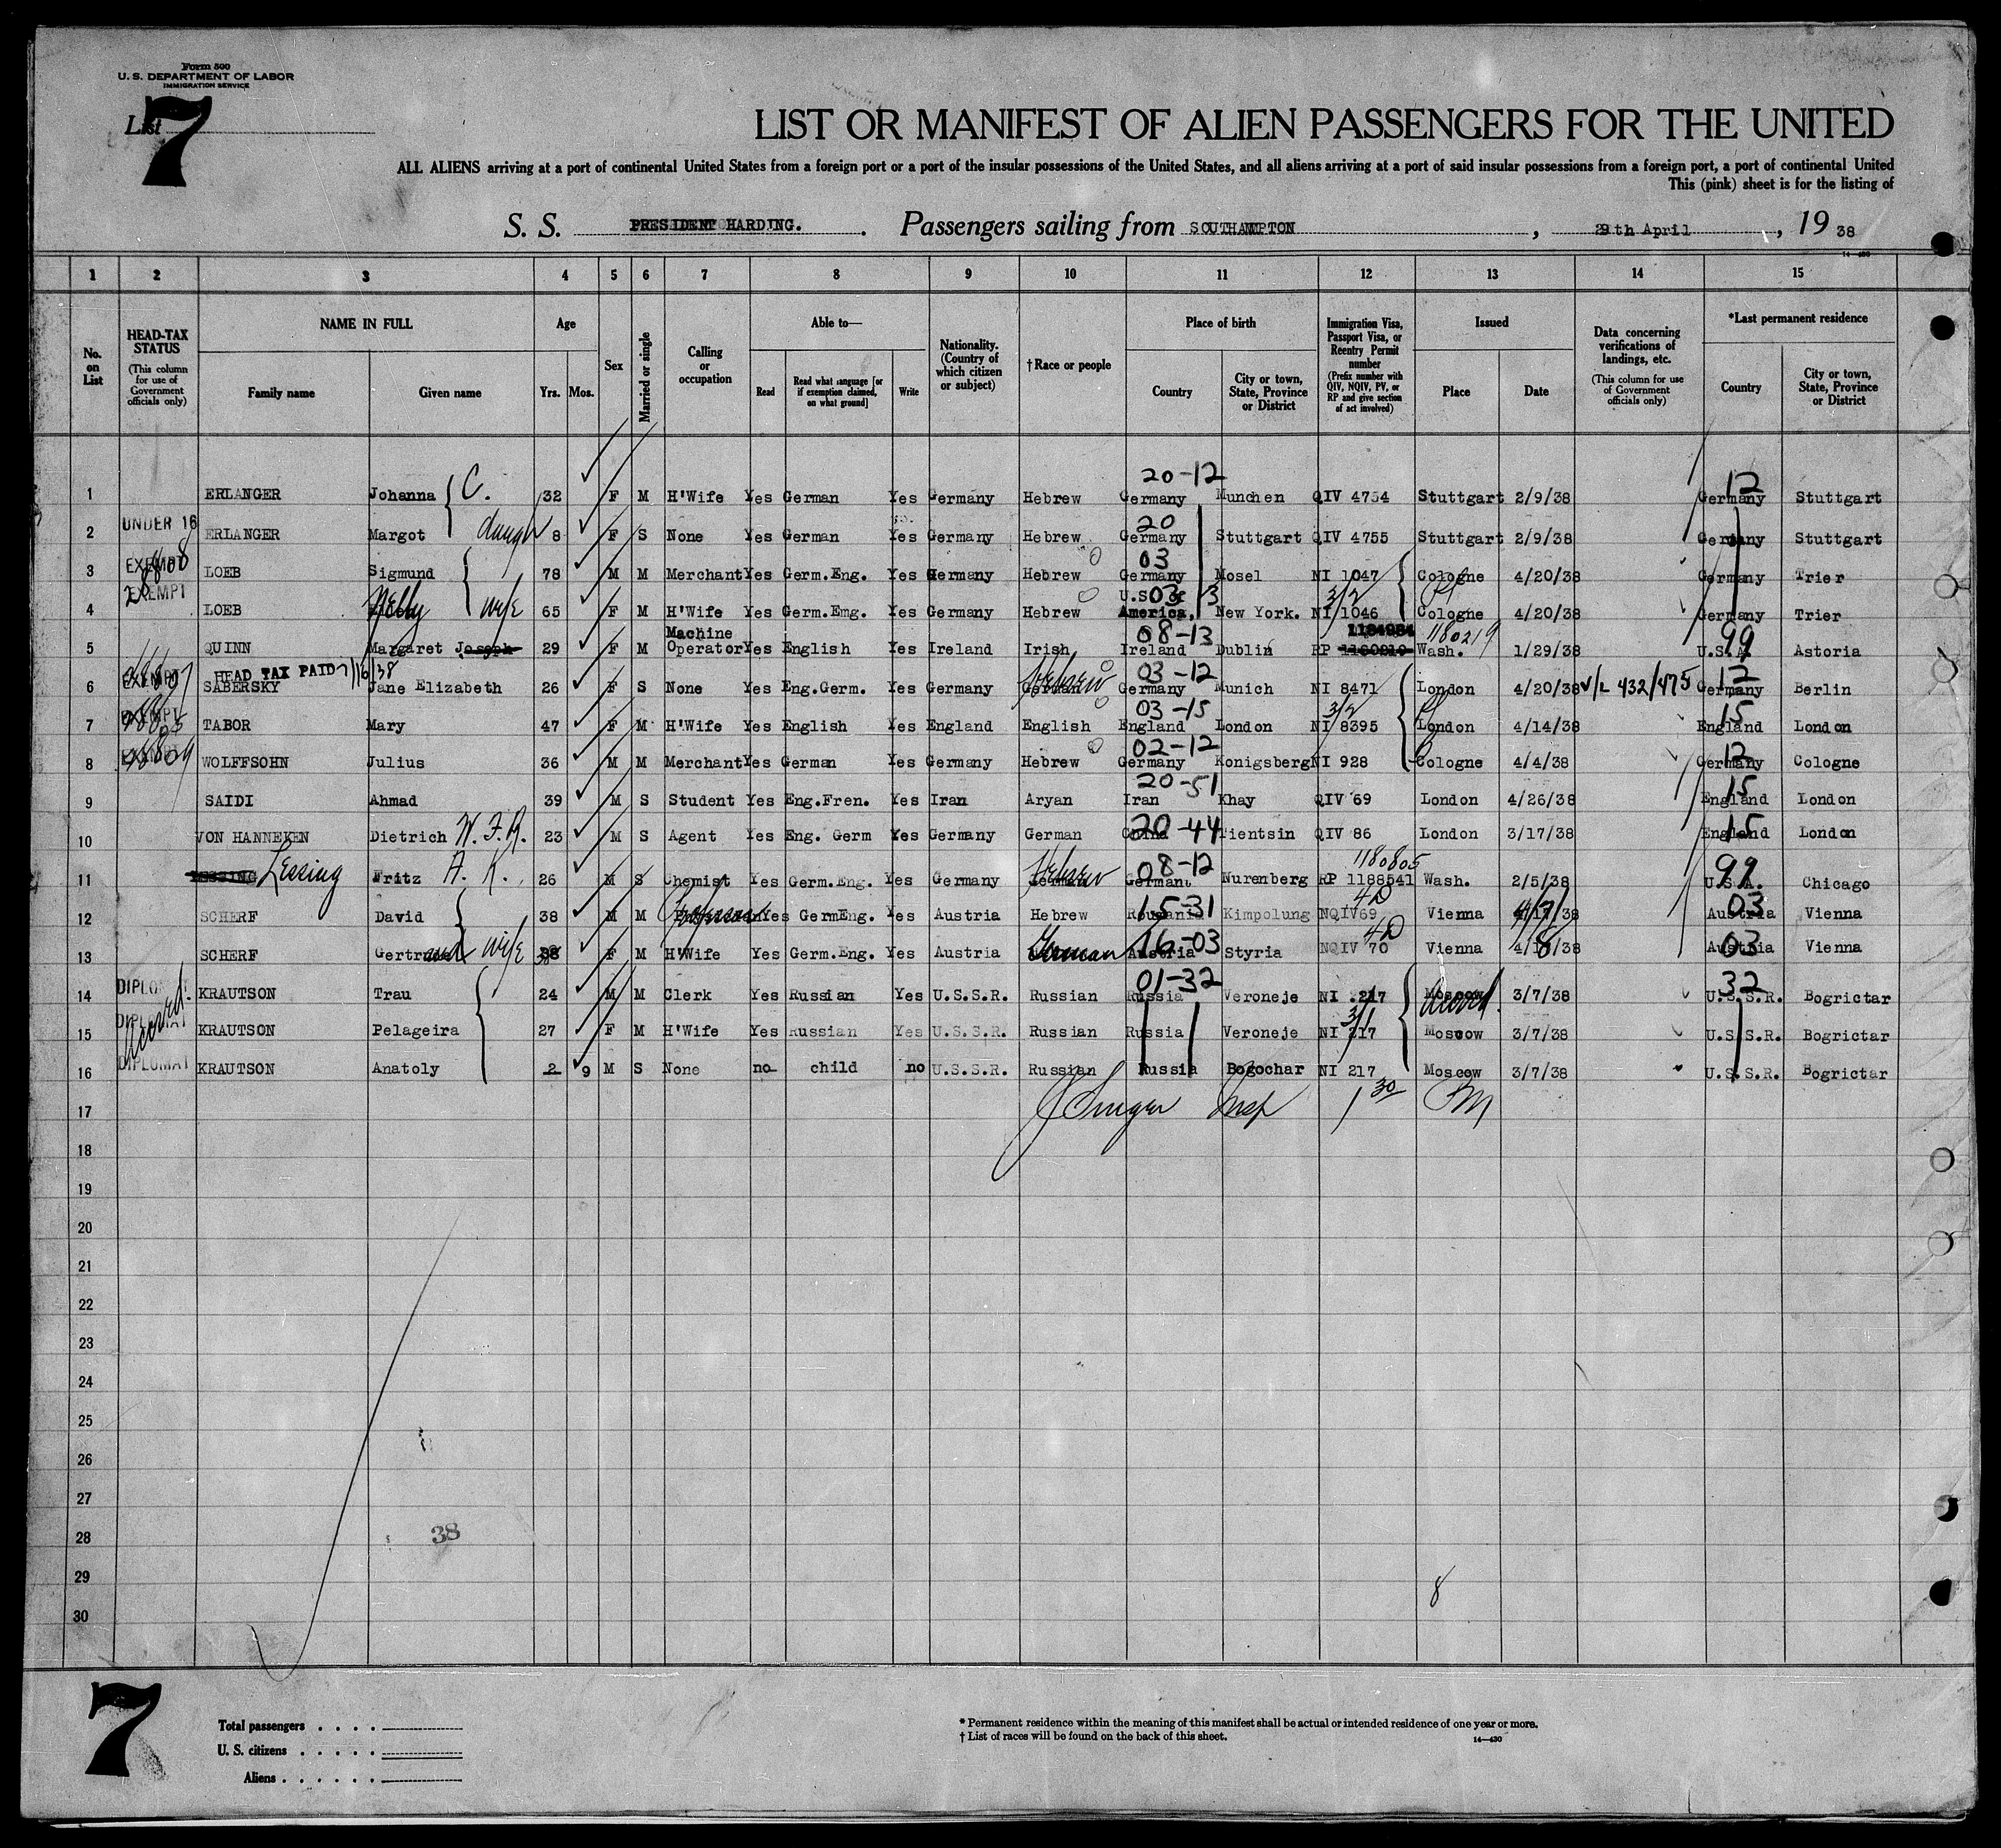 Form 500
U. S. DEPARTMENT OF LABOR
IMMIGRATION SERVICE
List 7
LIST OR MANIFEST OF ALIEN PASSENGERS FOR THE UNITED
ALL ALIENS arriving at a port of continental United States from a foreign port or a port of the insular possessions of the United States, and all aliens arriving at a port of said insular possessions from a foreign port, a port of continental United
This (pink) sheet is for the listing of
S. S. PRESIDENT HARDING. Passengers sailing from SOUTHAMPTON, 29th April, 19 38
14—430
1 2 3 4 5 6 7 8 9 10 11 12 13 14 15
No. on List
HEAD-TAX STATUS (This column for use of Government officials only)
NAME IN FULL
Family name Given name
Age Yrs. Mos.
Sex
Married or single
Calling or occupation
Able to—
Read Read what language [or if exemption claimed, on what ground] Write
Nationality. (Country of which citizen or subject)
†Race or people
Place of birth
Country City or town, State, Province or District
Immigration Visa, Passport Visa, or Reentry Permit number (Prefix number with QIV, NQIV, PV, or RP and give section of act involved)
Issued
Place Date
Data concerning verifications of landings, etc. (This column for use of Government officials only)
*Last permanent residence
Country City or town, State, Province or District
20-12 12
1 ERLANGER Johanna C. 32 F M H'Wife Yes German Yes Germany Hebrew Germany Munchen QIV 4754 Stuttgart 2/9/38 Germany Stuttgart
20
2 UNDER 16 ERLANGER Margot daugh 8 F S None Yes German Yes Germany Hebrew Germany Stuttgart QIV 4755 Stuttgart 2/9/38 Germany Stuttgart
03
3 EXEMPT LOEB Sigmund 78 M M Merchant Yes Germ.Eng. Yes Germany Hebrew Germany Mosel NI 1047 Cologne 4/20/38 Germany Trier
03 3 3/2
4 EXEMPT LOEB Nelly wife 65 F M H'Wife Yes Germ.Emg. Yes Germany Hebrew U.S. of America, New York. NI 1046 Cologne 4/20/38 Germany Trier
08-13 1184984 1180219 99
5 QUINN Margaret Joseph 29 F M Machine Operator Yes English Yes Ireland Irish Ireland Dublin RP 1180219 Wash. 1/29/38 U.S.A. Astoria
HEAD TAX PAID 7/16/38 03-12 12
6 EXEMPT SABERSKY Jane Elizabeth 26 F S None Yes Eng.Germ. Yes Germany German Hebrew Germany Munich NI 8471 London 4/20/38 V/L 432/475 Germany Berlin
03-15 3/2 15
7 EXEMPT TABOR Mary 47 F M H'Wife Yes English Yes England English England London NI 8395 London 4/14/38 England London
02-12 12
8 EXEMPT WOLFFSOHN Julius 36 M M Merchant Yes German Yes Germany Hebrew Germany Konigsberg NI 928 Cologne 4/4/38 Germany Cologne
20-51 15
9 SAIDI Ahmad 39 M S Student Yes Eng.Fren. Yes Iran Aryan Iran Khay QIV 69 London 4/26/38 England London
20-44 15
10 VON HANNEKEN Dietrich W. F. R. 23 M S Agent Yes Eng. Germ Yes Germany German China Tientsin QIV 86 London 3/17/38 England London
08-12 1180805 99
11 LESSING Lessing Fritz A. K. 26 M S Chemist Yes Germ.Eng. Yes Germany Hebrew Germant Nurenberg RP 1188541 Wash. 2/5/38 U.S.A. Chicago
15-31 4D 03
12 SCHERF David 38 M M Yes GermEng. Yes Austria Hebrew Roumania Kimpolung NQIV69 Vienna 4/17/38 Austria Vienna
16-03 4D 03
13 SCHERF Gertrude wife 38 F M H'Wife Yes Germ.Eng. Yes Austria German Austria Styria NQIV 70 Vienna 4/18/38 Austria Vienna
01-32 32
14 DIPLOMAT KRAUTSON Trau 24 M M Clerk Yes Russian Yes U.S.S.R. Russian Russia Veroneje NI 217 Moscow 3/7/38 U.S.S.R. Bogrictar
3/1
15 DIPLOMAT KRAUTSON Pelageira 27 F M H'Wife Yes Russian Yes U.S.S.R. Russian Russia Veroneje NI 217 Moscow 3/7/38 U.S.S.R. Bogrictar
16 DIPLOMAT KRAUTSON Anatoly 2 9 M S None no child no U.S.S.R. Russian Russia Bogochar NI 217 Moscow 3/7/38 U.S.S.R. Bogrictar
17 J Singer Insp 1 30 PM
18
19
20
21
22
23
24
25
26
27
28 38
29 8
30
7
Total passengers
U. S. citizens
Aliens
* Permanent residence within the meaning of this manifest shall be actual or intended residence of one year or more.
† List of races will be found on the back of this sheet.
14—430